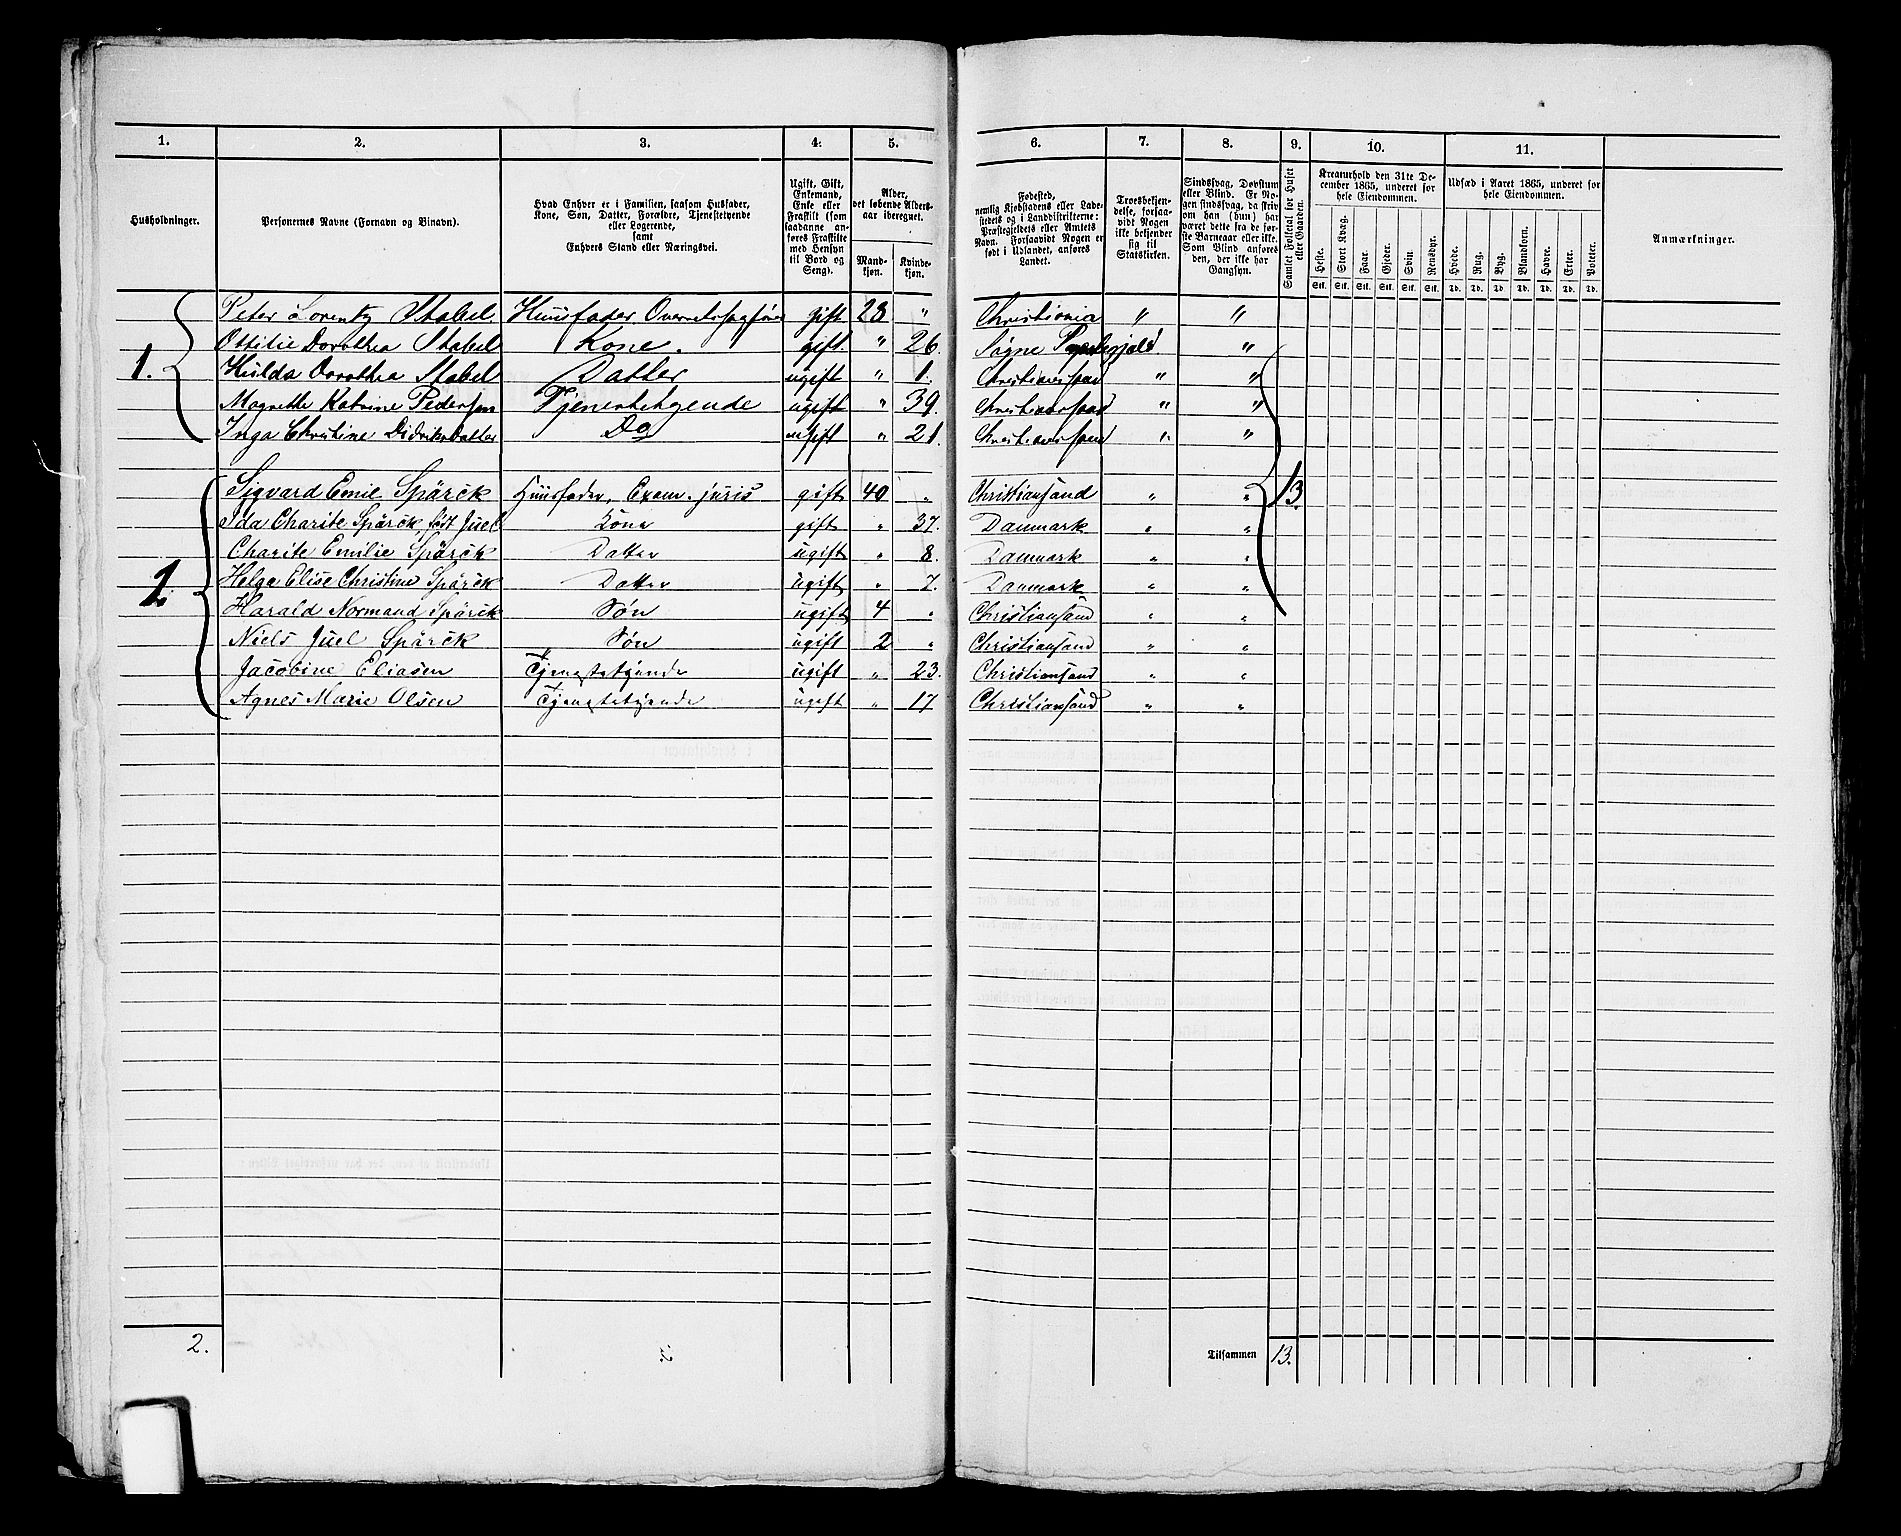 1. 2. 3. 4. 5. 6. 7. 8. 9. 10. 11.
Husholdninger.
Personernes Navne (Fornavn og Binavn).
Hvad Enhver er i Familien, saasom Husfader,
Kone, Søn, Datter, Forældre, Tjenestetyende
eller Logerende,
samt
Enhvers Stand eller Næringsvei.
Ugift, Gift,
Enkemand,
Enke eller
Fraskilt (som
saadanne an-
føres Fraskilte
med Hensyn
til Bord og
Seng).
Alder,
det løbende Alders-
aar iberegnet.
Mand-
kjøn.
Kvinde-
kjøn.
Fødested,
nemlig Kjøbstadens eller Lade-
stedets og i Landdistrikterne:
Præstegjeldets eller Amtets
Navn. Forsaavidt Nogen er
født i Udlandet, anføres
Landet.
Troesbekjen-
delse, forsaa-
vidt Nogen
ikke bekjender
sig til
Statskirken.
Sindssvag, Døvstum
eller Blind. Er No-
gen sindssvag, da skriv
om han (hun) har
været dette fra de før-
ste Barneaar eller ikke.
Som Blind anføres
den, der ikke har
Gangsyn.
Samlet Folketal for Huset
eller Gaarden.
Kreaturhold den 31te De-
cember 1865, underet for
hele Eiendommen.
Heste. Stort Kvæg. Faar. Gjeder. Svin. Rensdyr.
Stk. Stk. Stk. Stk. Stk. Stk.
Udsæd i Aaret 1865, underet for
hele Eiendommen.
Hvede. Rug. Byg. Blandkorn. Havre. Erter. Poteter.
Td. Td. Td. Td. Td. Td. Td.
Anmærkninger.
Peter Lorentz Stabel Huusfader Overretssagfører gift 28 " Christiania " "
Ottilie Dorothea Stabel Kone. gift. " 26. Søgne Præstegjeld "
1. Hulda Dorothea Stabel Datter ugift " 1. Christianssand " "
Magrethe Katrine Pedersen Tjenestetyende ugift " 39. Christianssand " "
Inga Christine Didriksdatter Do ugift " 21. Christianssand " "
Sigvard Emil Spärck Huusfader, Exam. juris gift 40 " Christiansand " " 13.
Ida Charite Spärck, født Juel Kone gift " 37. Danmark " "
Charite Emilie Spärck Datter ugift " 8. Danmark " "
2 Helga Elise Christine Spärck Datter ugift " 7. Danmark " "
Harald Normand Spärck Søn ugift 4 " Christiansand " "
Niels Juel Spärck Søn ugift 2 " Christiansand " "
Jacobine Eliasen Tjenestetyende ugift " 23. Christiansand " "
Agnes Marie Olsen Tjenestetyende ugift " 17 Christiansand " "
2. Tilsammen 13.